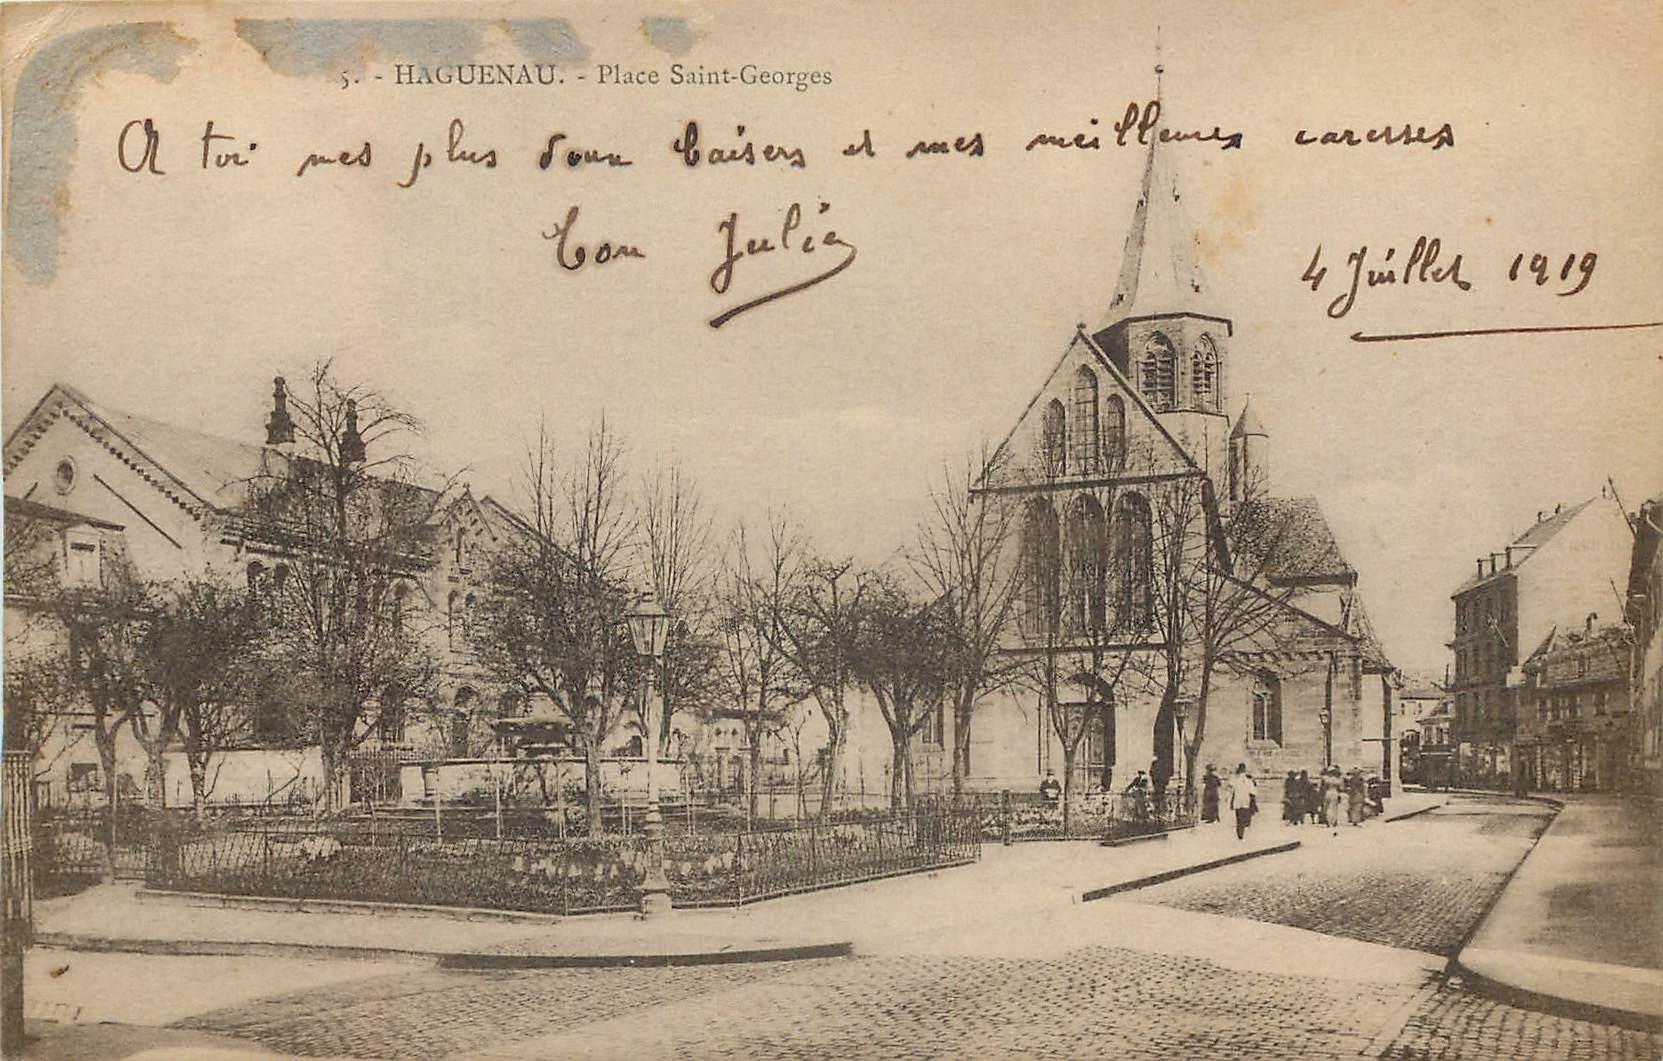 5. - HAGUENAU. - Place Saint-Georges
A toi mes plus doux baisers et mes meilleures caresses
Ton Julia
4 Juillet 1919